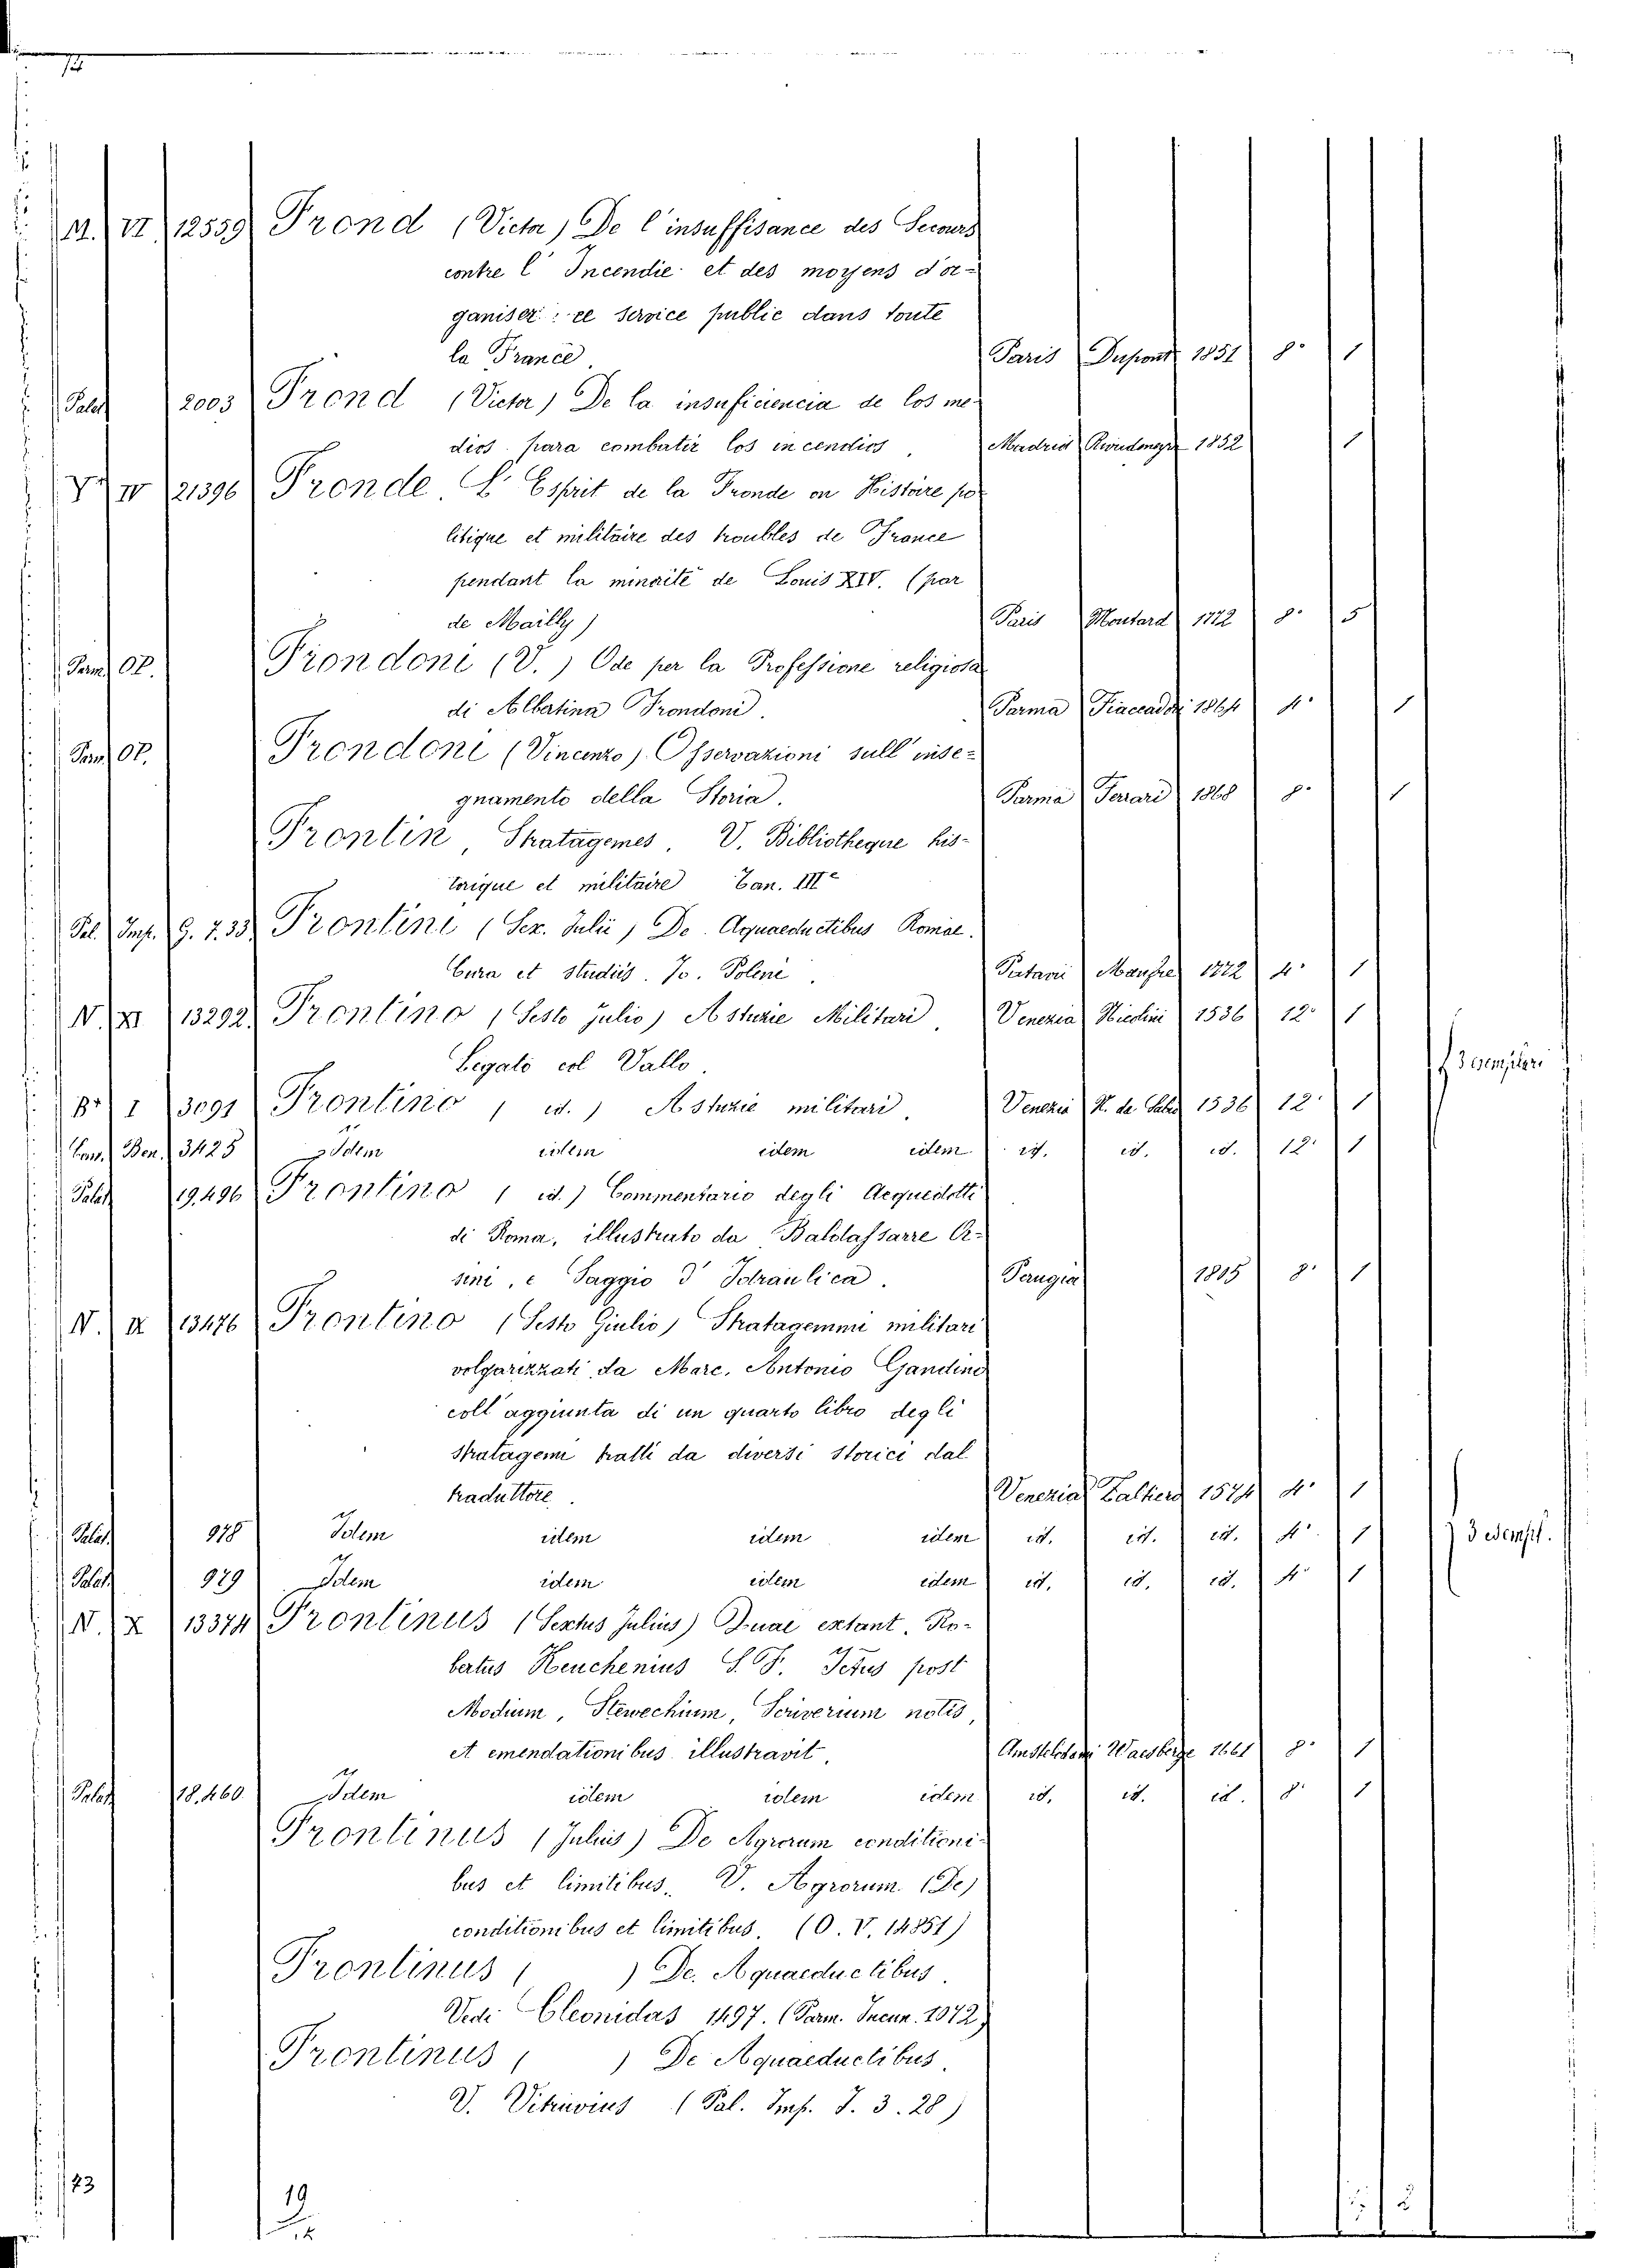 M. VI 12559 Frond (Victor) De l'insuffisance des Secours
contre l'Incendie et des moyens d'or-
ganiser ce service public dans toute
la France. Paris Dupont 1851 8° 1
Palat 2003 Frond (Victor) De la insuficiencia de los me-
dios para combatir los incendios, Madrid 1852 1
V IV 21396 Fronde L'Esprit de la Fronde on Histoire po-
litique et militaire des troubles de France
pendant la minorité de Louis XIV. (par
de Mailly) Paris Moutard 1772 8° 5
Parm. OP. Frondoni (V.) Ode per la Professione religiosa
di Albertina Frondoni. Parma Fiaccadori 1864 4° 1
Parm. OP. Frondoni (Vincenzo) Osservazioni sull'inse-
gnamento della Storia. Parma Ferrari 1868 8° 1
Frontin, Stratagemes, V. Bibliotheque his-
torique et militaire Tan. III°
Pal. Imp. G. 7.33 Frontini (Sex. Julii) De Aquaeductibus Romae.
Cura et studiis Jo. Poleni. Patavii Manfre 1722 4° 1
N. XI 13292 Frontino (Sesto Julio) Astuzie Militari, Venezia Nicolini 1536 12° 1
Legato col Vallo. 3 esemplari
B* I 3091 Frontino (id.) Astuzie militari. Venezia N. de Sabio 1536 12° 1
Cons. Ben. 3425 Idem idem idem idem id. id. id. 12° 1
Palat 19,496 Frontino (id.) Commentario degli Acquedotti
di Roma, illustrato da Baldassarre Or-
sini, e Saggio d'Idraulica. Perugia 1805 8° 1
N. IX 13476 Frontino (Sesto Giulio) Stratagemmi militari
volgarizzati da Marc. Antonio Gandino
coll'aggiunta di un quarto libro degli
Stratagemi tratti da diversi Storici dal
traduttore. Venezia Zalterio 1574 4° 1
Palat. 978 Idem idem idem idem id. id. id. 4° 1 3 esempl.
Palat. 979 Idem idem idem idem id. id. id. 4° 1
N. X 13374 Frontinus (Sextus Julius) Quae extant. Ro-
bertus Keuchenius S. F. Jetus post
Modium, Stewechium, Scriverium notis,
et emendationibus illustravit. Amstelodami Waesberge 1661 8° 1
Palat 18,460 Idem idem idem idem id. id. id. 8° 1
Frontinus (Julius) De Agrorum conditioni-
bus et limitibus. V. Agrorum (De)
conditionibus et limitibus. (O. V. 14851)
Frontinus ( ) De Aquaeductibus.
Vedi Cleonidas 1497. (Parm. Incun. 1072)
Frontinus ( ) De Aquaeductibus.
V. Vitruvius (Pal. Imp. I. 3. 28)
23 19